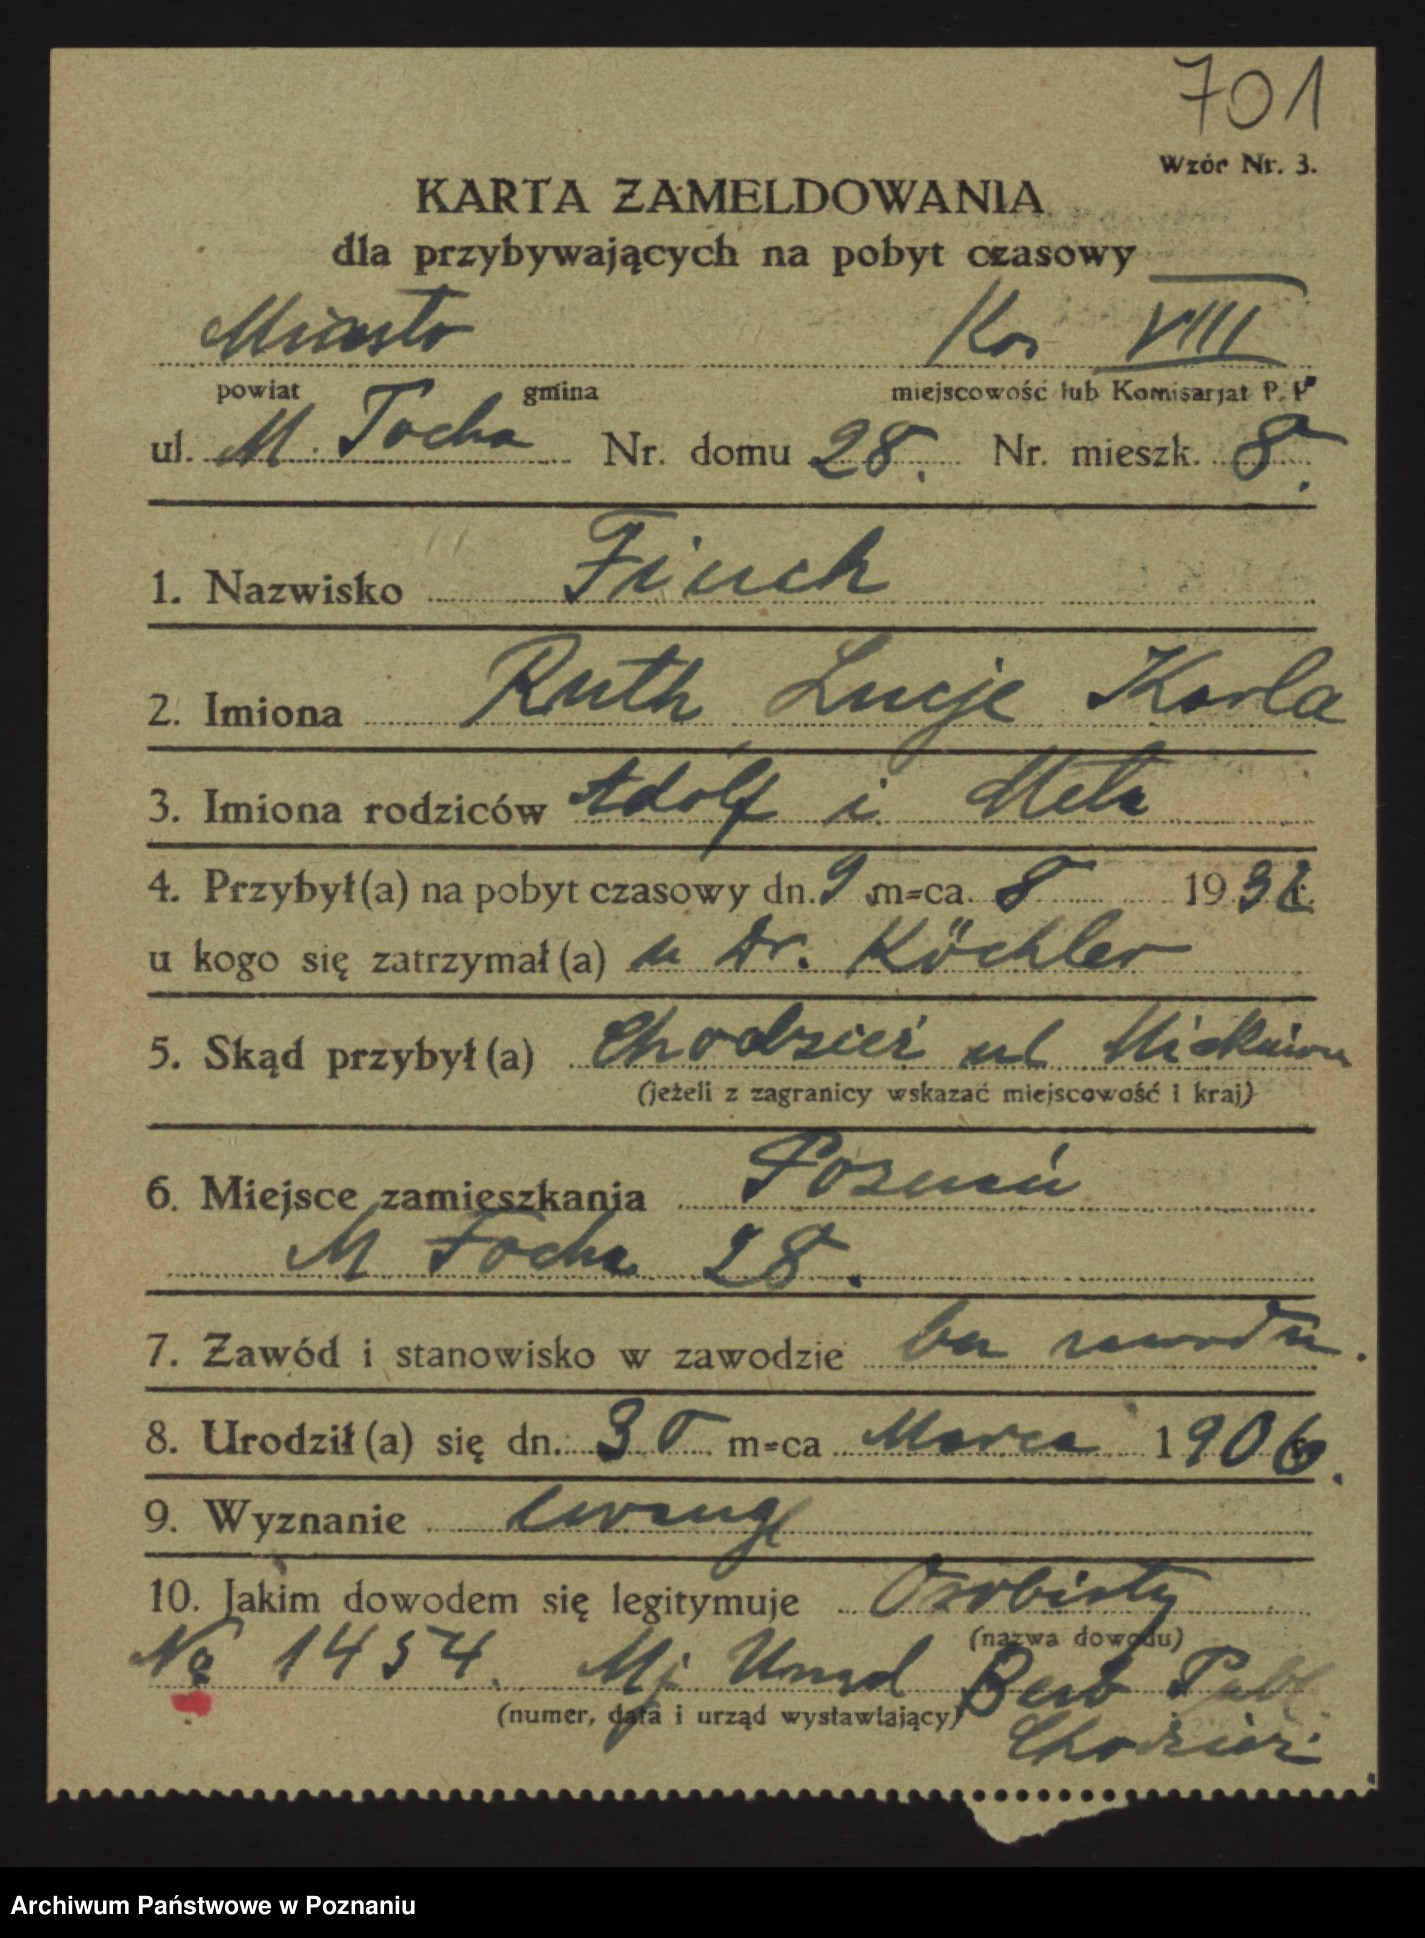 701
Wzór Nr. 3.
KARTA ZAMELDOWANIA
dla przybywających na pobyt czasowy
Miasto Kom VIII
powiat gmina miejscowość lub Komisarjat P. P.
ul. M. Focha Nr. domu 28. Nr. mieszk. 8.
1. Nazwisko Finch
2. Imiona Ruth Lucje Karla
3. Imiona rodziców Adolf i Meta
4. Przybył(a) na pobyt czasowy dn. 9 m=ca 8 193 r.
u kogo się zatrzymał(a) u Dr. Köchler
5. Skąd przybył(a) Chodzież ul
(jeżeli z zagranicy wskazać miejscowość i kraj)
6. Miejsce zamieszkania Poznań
M Focha 28.
7. Zawód i stanowisko w zawodzie bez zawodu.
8. Urodził(a) się dn. 30 m=ca Marca 1906.
9. Wyznanie ewang
10. Jakim dowodem się legitymuje Osobisty
(nazwa dowodu)
No 1454. Urząd Bezp Publ.
(numer, data i urząd wystawiający)
Chodzież
Archiwum Państwowe w Poznaniu